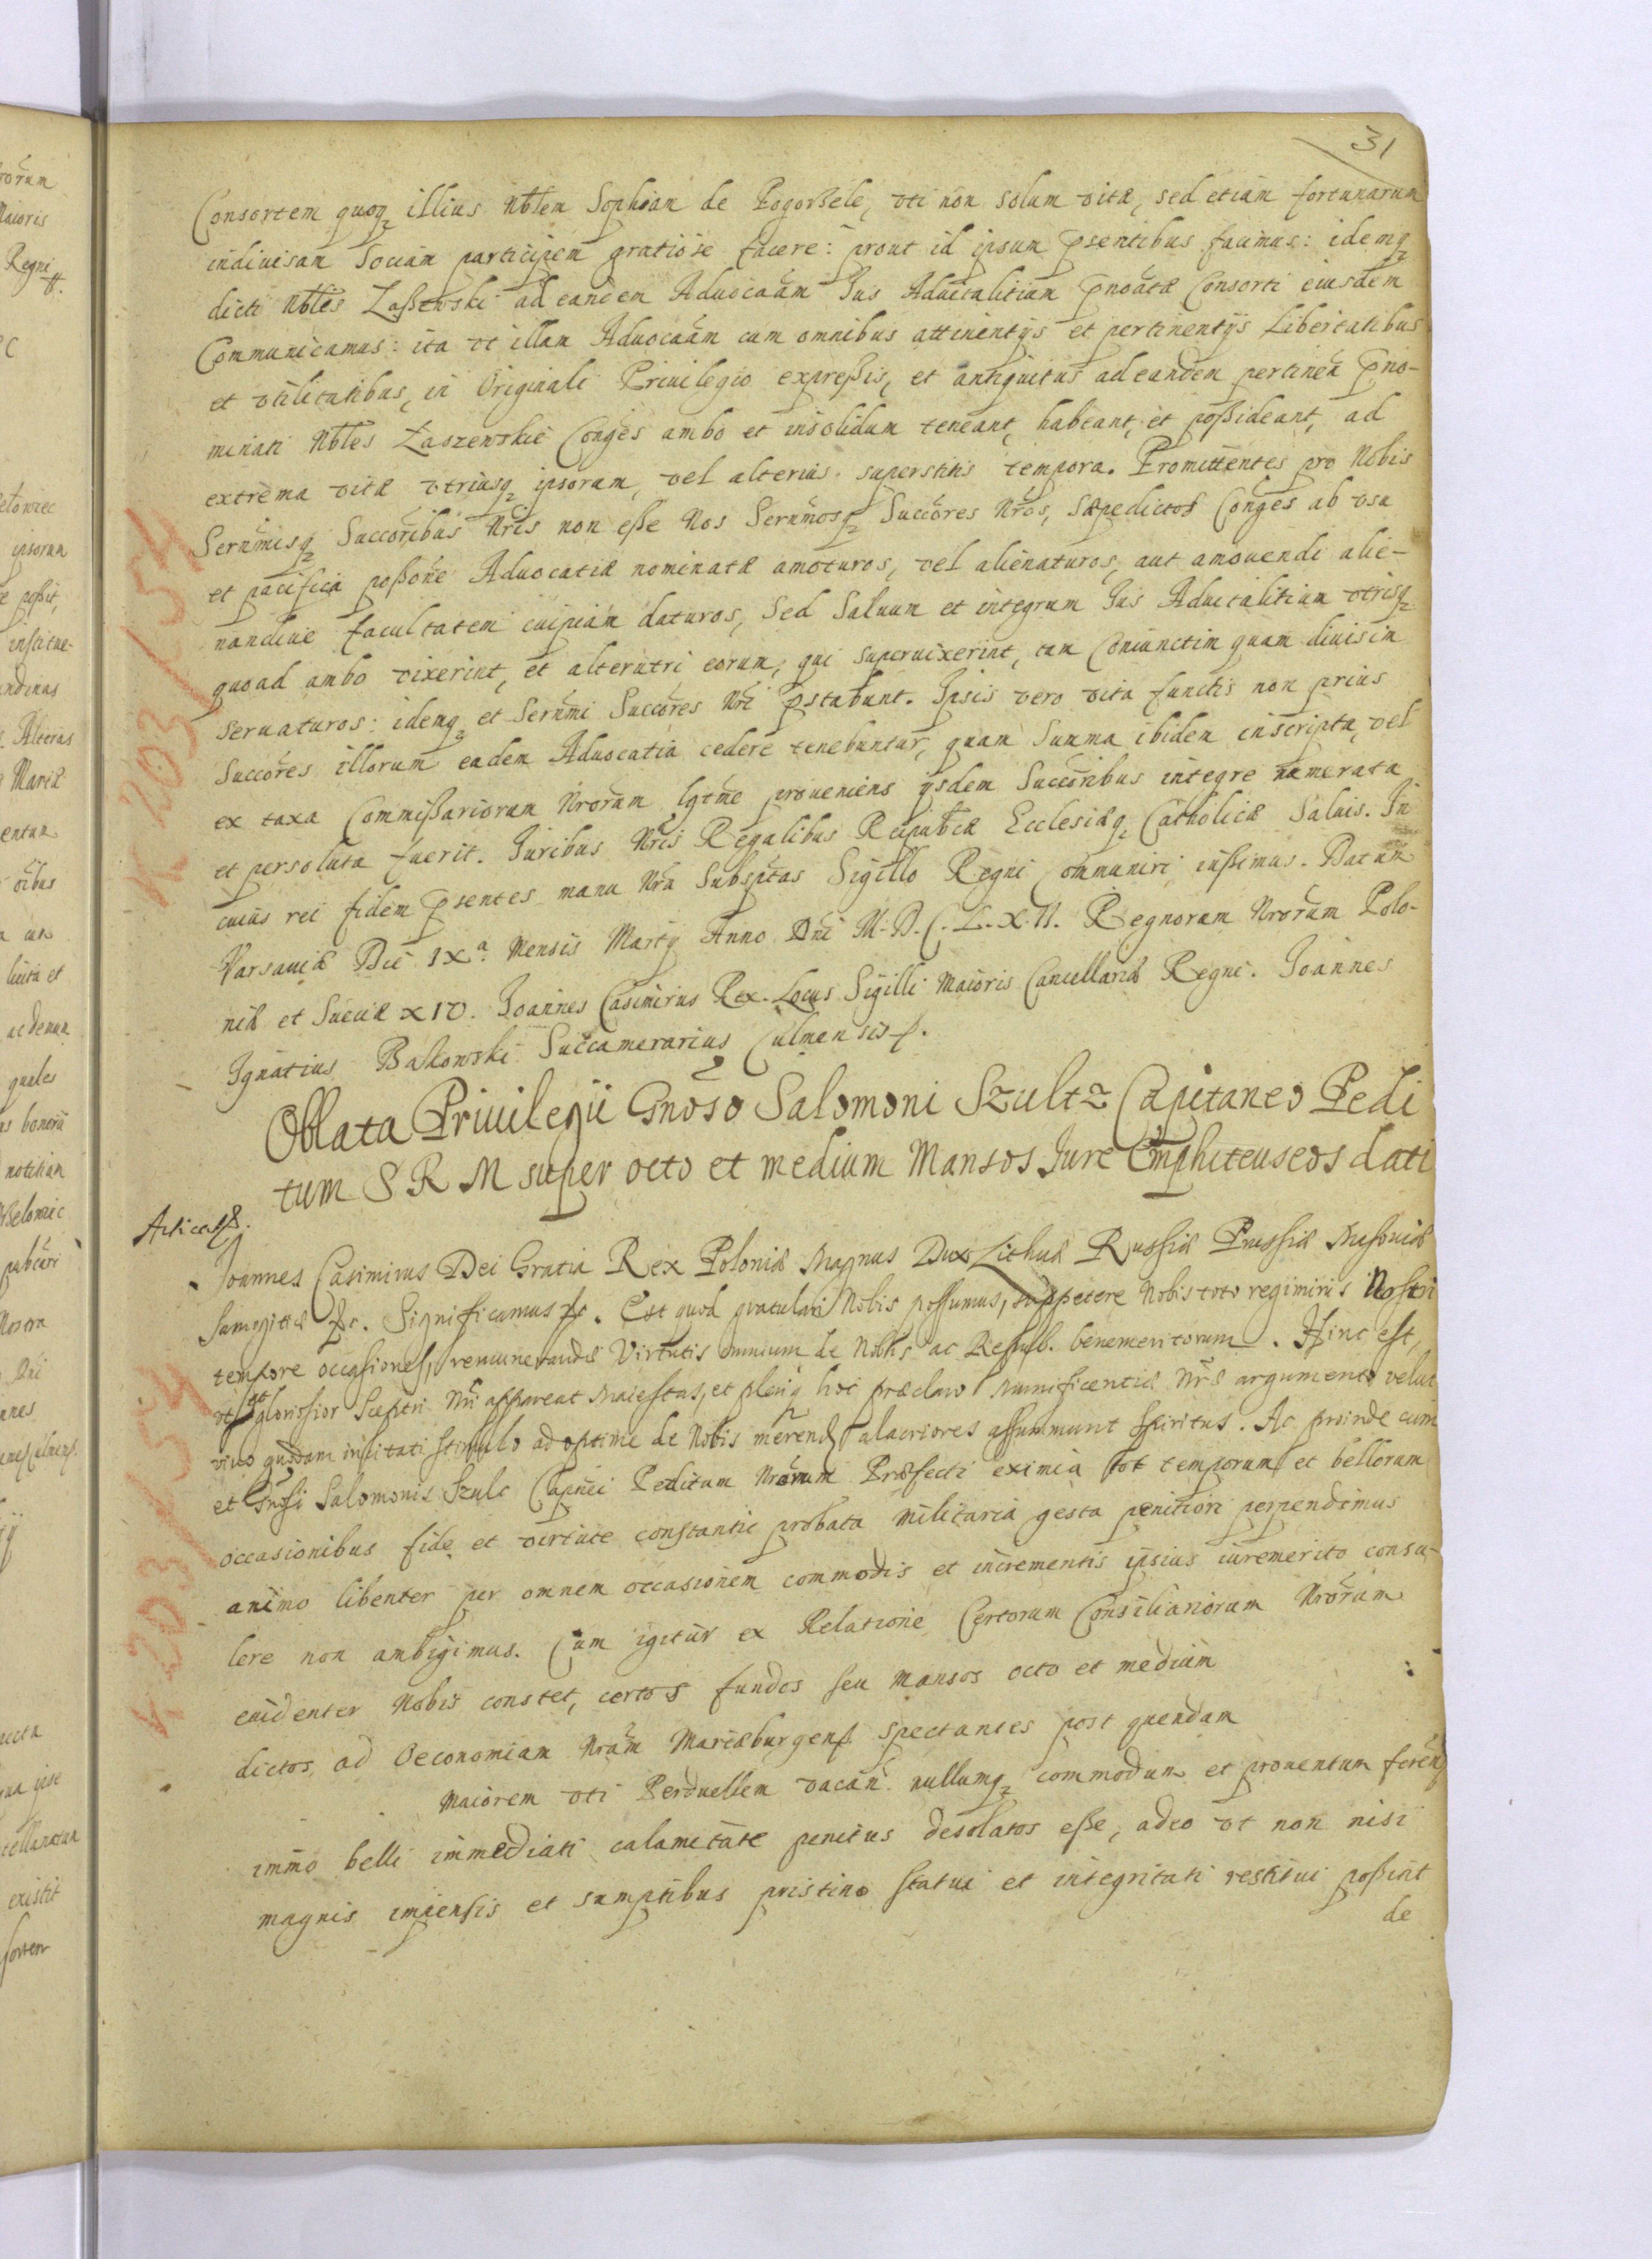 31
Consortem quoq illius Nblem Sophiam de Pogorßele, vti non solum vitæ, sed etiam fortunarum
indiuisam Sociam participem gratiose facere: prout id ipsum psentibus facimus: idemq
dicti Nbles Zaßewski ad eandem Aduocaām Jus Aduitalitium pnoātæ Consorti eiusdem
Communicamus: ita vt illam Aduocaām cum omnibus attinentijs et pertinentijs Libertatibus
et vtilitatibus, in Originali Priuilegio expreßis, et antiquitus ad eandem pertineñ pno-
minati Nbles Zaszewskie Conges ambo et insolidum teneant, habeant, et poßideant, ad
extrema vitæ vtriusq ipsorum, vel alterius superstitis tempora. Promittentes pro Nobis
Sernmisq Succoribus Nris non eße Nos Sernmosq Succores Nros, sæpedictos Conges ab vsu
et pacifica poßone Aduocatiæ nominatæ amoturos, vel alienaturos, aut amouendi alie-
nandiue facultatem cuipiam daturos, Sed Saluum et integrum Jus Aduitalitium vtrisq
quoad ambo vixerint, et alterutri eorum, qui superuixerint, tam Coniunctim quam diuisim
seruaturos: idemq et Sernmi Succores Nri pstabunt. Ipsis vero vita functis non prius
Succores illorum eadem Aduocatia cedere tenebuntur, quam Summa ibidem inscripta, vel
ex taxa Commißariorum Nrorum lgtme proueniens ijsdem Succoribus integre numerata
et persoluta fuerit. Juribus Nris Regalibus Reipubcæ Ecclesiæq Catholicæ Saluis. In
cuius rei fidem psentes manu Nra Subsptas Sigillo Regni Communiri iußimus. Datum
Varsauiæ Die IXa. Mensis Martij Anno Dni M.D.C.L.X.II. Regnorum Nrorum Polo-
niæ et Sueciæ XIV. Joannes Casimirus Rex. Locus Sigilli Maioris Cancellariæ Regni. Joannes
Ignatius Bąkowski Succamerarius Culmensis.
Oblata Priuilegii Gnoso Salomoni Szultz Capitaneo Pedi
tum S R M super octo et medium Mansos Jure Emphiteuseos dati
Joannes Casimirus Dei Gratia Rex Poloniæ Magnus Dux Lithuæ Russiæ Prussiæ Masouiæ
Samogitiæ &c. Significamus &c. Est quod gratulari Nobis possumus, suppetere Nobis toto regiminis Nostri
tempore occasiones, remunerandæ Virtutis omnium de Nobis ac Repub. benemeritorum. Hinc est,
vt et gloriosior Sceptri Nri appareat Maiestas, et pleriq hoc præclaro Munificentiæ Nræ argumento velut
viuo quodam incitati stimulo ad optime de Nobis merend alacriores assummunt Spiritus. Ac proinde cum
et Gnosi Salomonis Szulc Capnei Peditum Nrorum Præfecti eximia tot temporum et bellorum
occasionibus fide et virtute constantie probata militaria gesta penitiori perpendimus
animo libenter per omnem occasionem commodis et incrementis ipsius iuremerito consu-
lere non ambigimus. Cum igitur ex Relatione Certorum Consiliariorum Nrorum
euidenter Nobis constet, certos fundos seu Mansos octo et medium
dictos, ad Oeconomiam Nram Mariæburgens. spectantes post quendam
Maiorem vti Perduellem vacañ nullumq commodum et prouentum ferent
immo belli immediati calamitate penitus desolatos eße, adeo vt non nisi
magnis impensis et sumptibus pristino statui et integritati restitui poßint
de